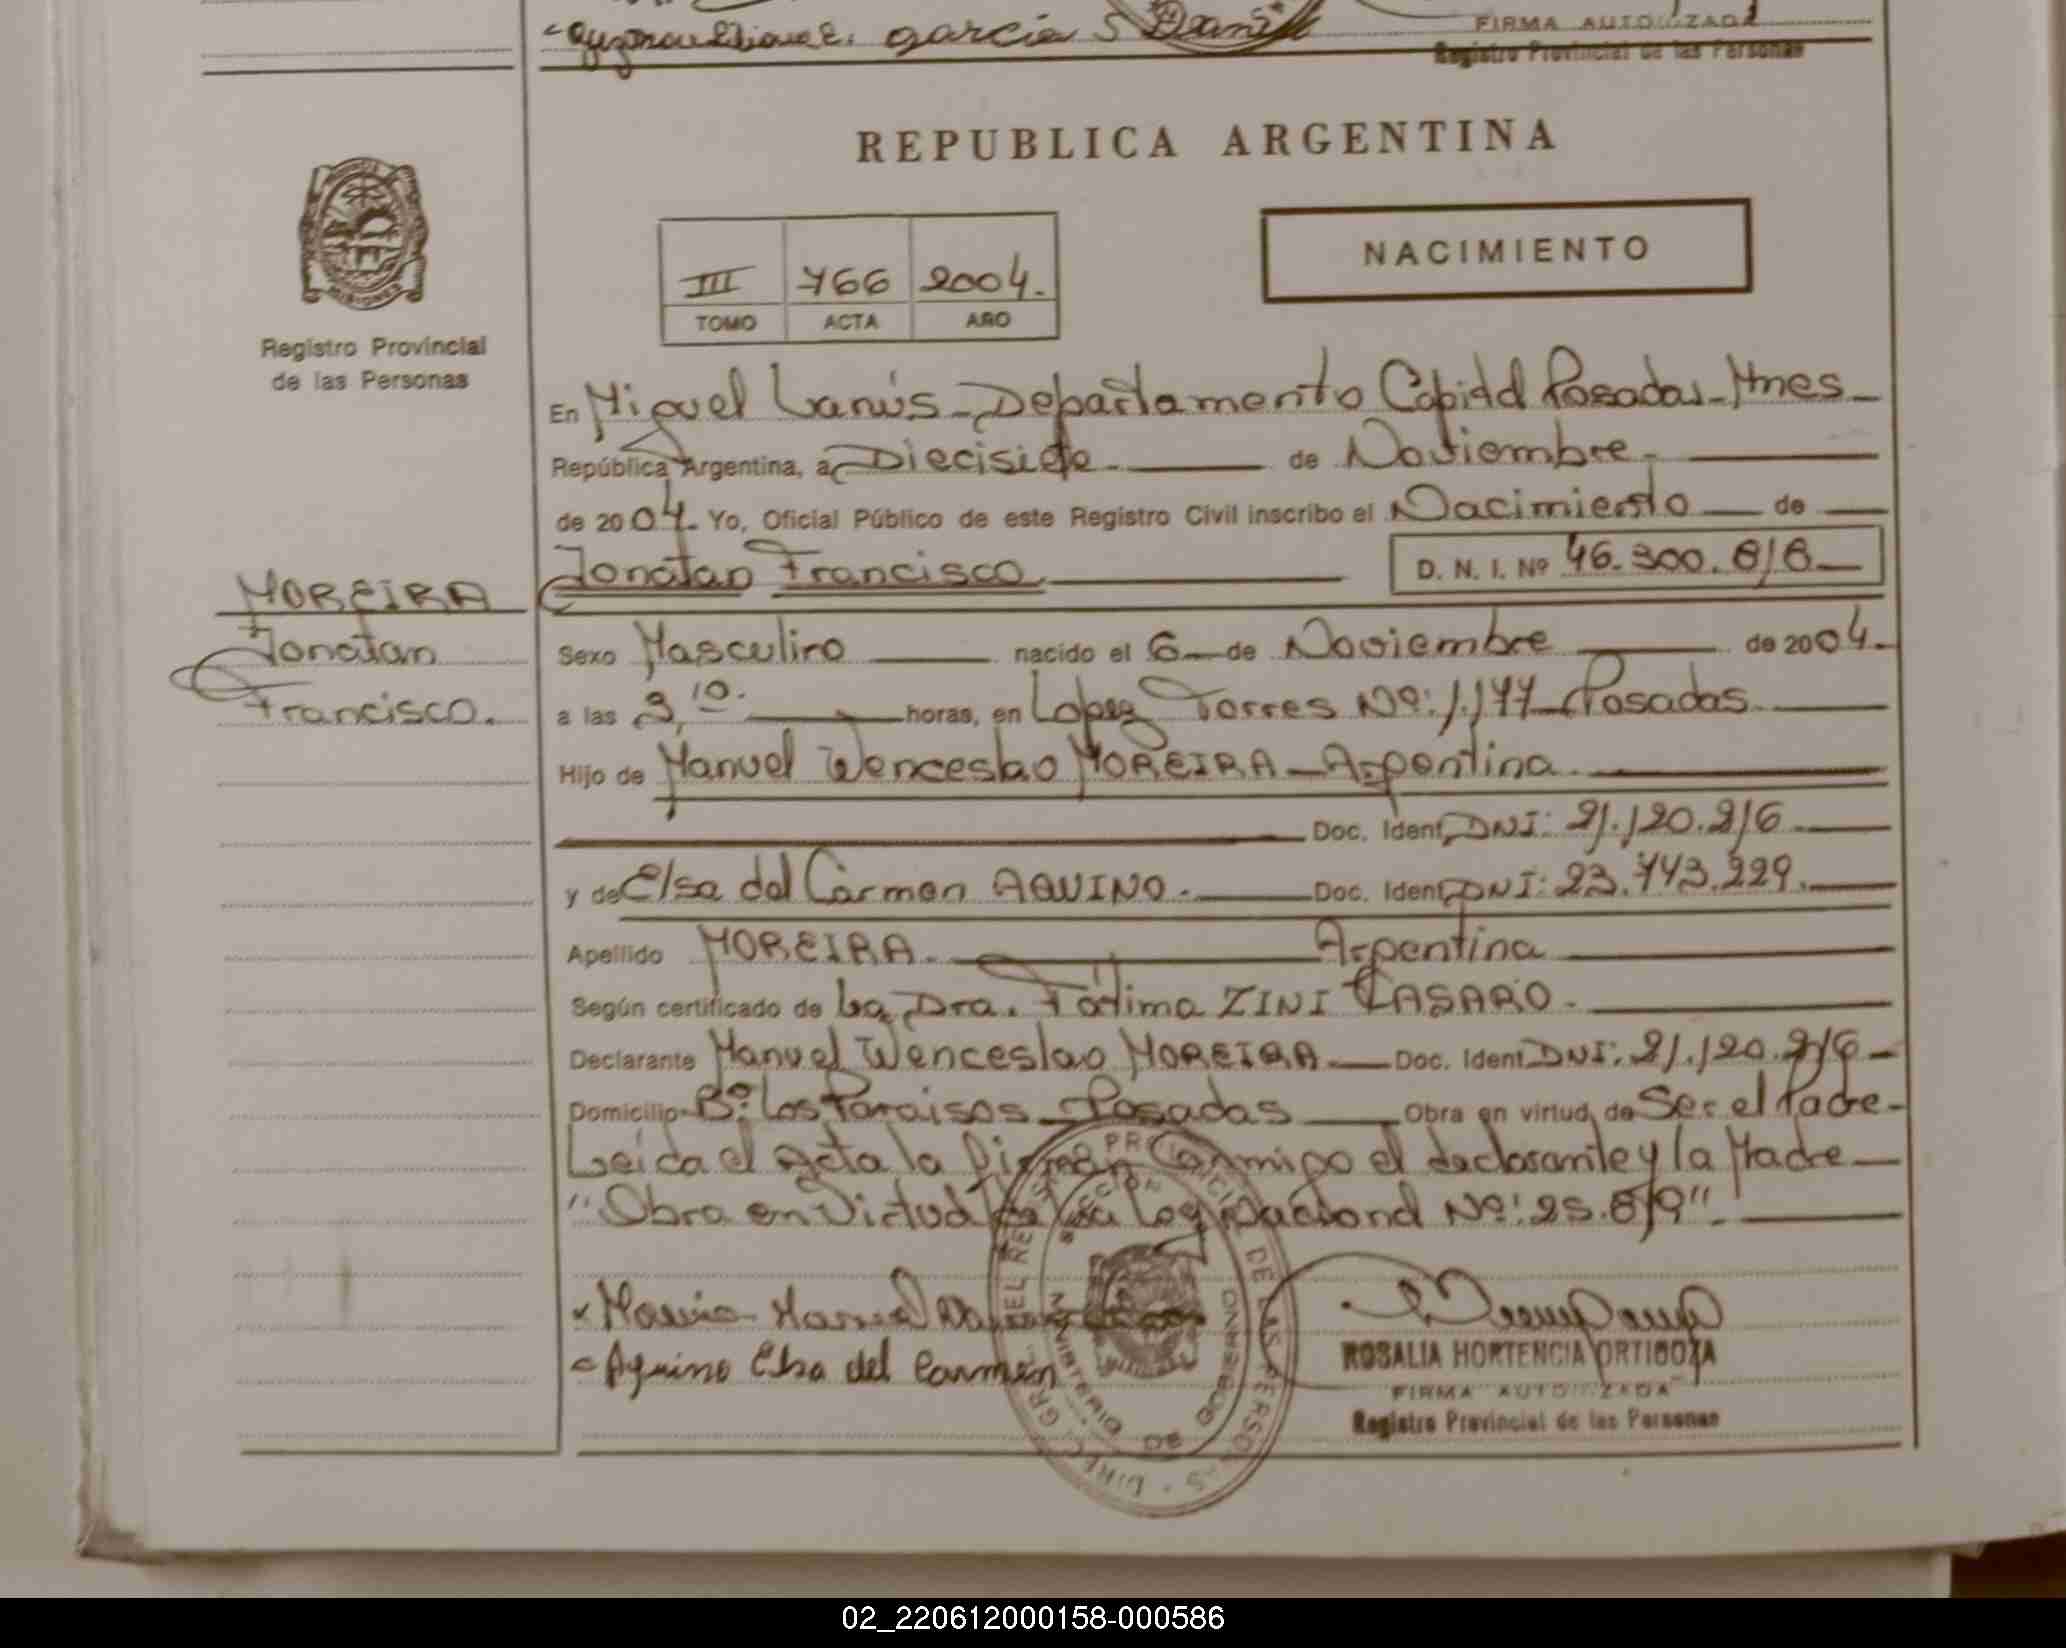 García S Daniel
FIRMA AUTORIZADA
Registro Provincial de las Personas
REPUBLICA ARGENTINA
NACIMIENTO
III 766 2004.
TOMO ACTA AÑO
MISIONES
Registro Provincial
de las Personas
En Miguel Lanús - Departamento Capital Posadas - Mnes -
República Argentina, a Diecisiete de Noviembre.
de 2004. Yo, Oficial Público de este Registro Civil inscribo el Nacimiento de
Jonatan Francisco D. N. I. Nº 46.300.818
MOREIRA
Jonatan
Francisco.
Sexo Masculino nacido el 6 de Noviembre de 2004.
a las 3,10. horas, en Lopez Torres Nº: 1.177 - Posadas
Hijo de Manuel Wenceslao MOREIRA - Argentina.
Doc. Ident. DNI: 21.120.216
y de Elsa del Carmen AQUINO. Doc. Ident. DNI: 23.743.229.
Apellido MOREIRA. Argentina
Según certificado de La Dra. Fátima ZINI CASARO.
Declarante Manuel Wenceslao MOREIRA Doc. Ident. DNI: 21.120.216
Domicilio Bº: Los Paraisos - Posadas Obra en virtud de Ser el Padre -
Leída el acta la firman Conmigo el declarante y la Madre
"Obra en Virtud de la Ley Nacional Nº: 25.819".
Aquino Elsa del Carmen
ROSALIA HORTENCIA ORTIGOZA
FIRMA AUTORIZADA
Registro Provincial de las Personas
02_220612000158-000586